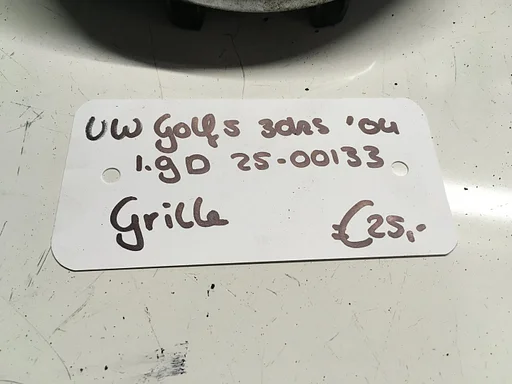 VW Golf 5 3drs '04
1.9D 25-00133
Grille €25,-